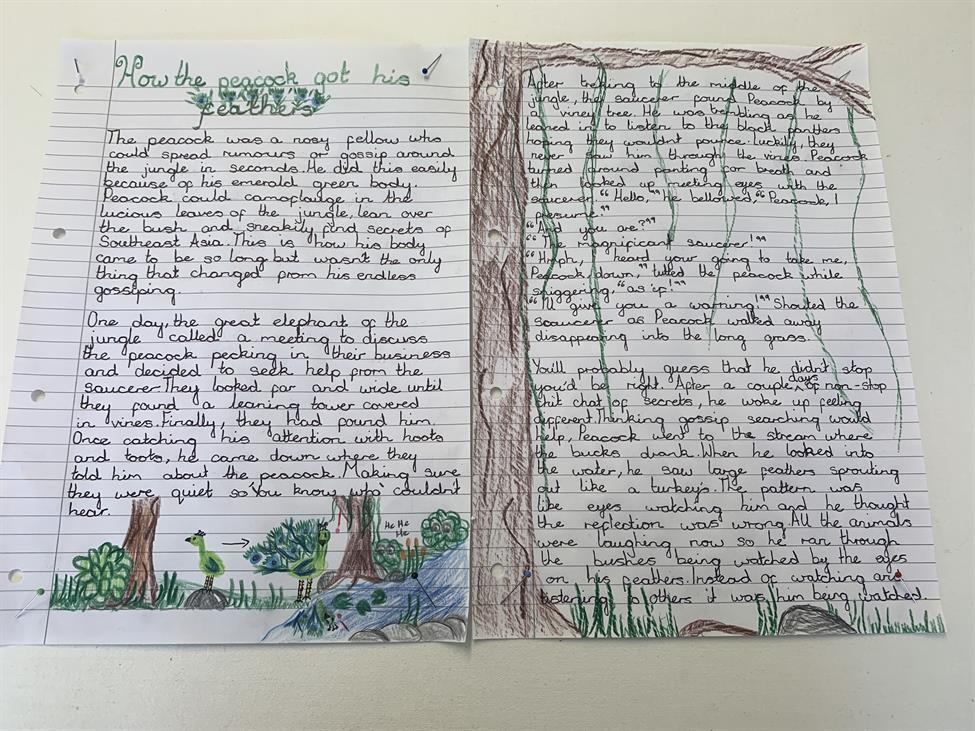 How the peacock got his
feathers
The peacock was a nosy fellow who
could spread rumours or gossip around
the jungle in seconds. He did this easily
because of his emerald green body.
Peacock could camoflauge in the
lucious leaves of the jungle, lean over
the bush and sneakily find secrets of
Southeast Asia. This is how his body
came to be so long but wasn't the only
thing that changed from his endless
gossiping.
One day, the great elephant of the
jungle called a meeting to discuss
the peacock pecking in their business
and decided to seek help from the
saucerer. They looked far and wide until
they found a leaning tower covered
in vines. Finally, they had found him.
Once catching his attention with hoots
and toots, he came down where they
told him about the peacock. Making sure
they were quiet so 'You know who' couldn't
hear.
He He
He
After treking to the middle of the
jungle, the saucerer found Peacock by
a viney tree. He was trembling as he
leaned in to listen to the black panthers
hoping they wouldn't pounce. Luckily, they
never saw him through the vines. Peacock
turned around panting for breath and
then looked up meeting eyes with the
saucerer. "Hello," he bellowed, "Peacock, I
presume."
"And you are?"
"The magnificant saucerer!"
"Hmph, I heard your going to take me,
Peacock, down," tutted the peacock while
sniggering, "as if!"
"I'll give you a warning!" Shouted the
soaucerer as Peacock walked away
disappearing into the long grass.
You'll probably guess that he didn't stop
you'd be right. After a couple days of non-stop
chit chat of secrets, he woke up feeling
different. Thinking gossip searching would
help, Peacock went to the stream where
the bucks drank. When he looked into
the water, he saw large feathers sprouting
out like a turkey's. The pattern was
like eyes watching him and he thought
the reflection was wrong. All the animals
were laughing now so he ran through
the bushes being watched by the eyes
on his feathers. Instead of watching and
listening to others it was him being watched.